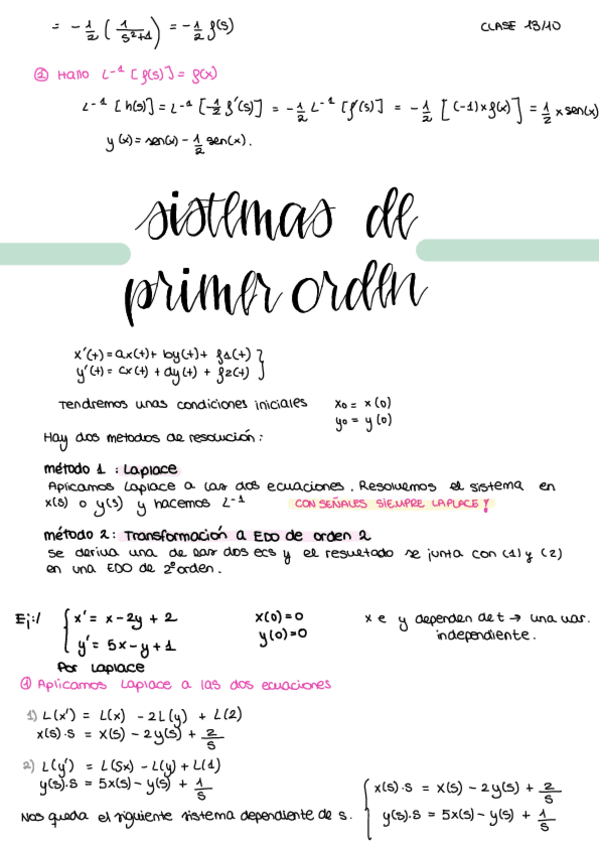 = - 1/2 ( 1/(s²+1) ) = - 1/2 f(s)
CLASE 13/10
② Hallo L⁻¹ [f(s)] = f(x)
L⁻¹ [h(s)] = L⁻¹ [-1/2 f'(s)] = - 1/2 L⁻¹ [f'(s)] = - 1/2 [(-1)x f(x)] = 1/2 x sen(x)
y(x) = sen(x) - 1/2 sen(x).
sistemas de
primer orden
x'(t) = ax(t) + by(t) + f1(t) }
y'(t) = cx(t) + dy(t) + f2(t) }
Tendremos unas condiciones iniciales x0 = x(0)
y0 = y(0)
Hay dos metodos de resolución:
método 1 : Laplace
Aplicamos Laplace a las dos ecuaciones. Resolvemos el sistema en
x(s) o y(s) y hacemos L⁻¹ CON SEÑALES SIEMPRE LAPLACE!
método 2: Transformación a EDO de orden 2
se deriva una de las dos ecs y el resultado se junta con (1) y (2)
en una EDO de 2º orden.
Ej:/ { x' = x - 2y + 2 x(0) = 0 x e y dependen de t → una var.
y' = 5x - y + 1 y(0) = 0 independiente.
Por Laplace
① Aplicamos Laplace a las dos ecuaciones
1) L(x') = L(x) - 2L(y) + L(2)
x(s)·s = x(s) - 2y(s) + 2/s
2) L(y') = L(5x) - L(y) + L(1)
y(s)·s = 5x(s) - y(s) + 1/s
Nos queda el siguiente sistema dependiente de s.
{ x(s)·s = x(s) - 2y(s) + 2/s
y(s)·s = 5x(s) - y(s) + 1/s